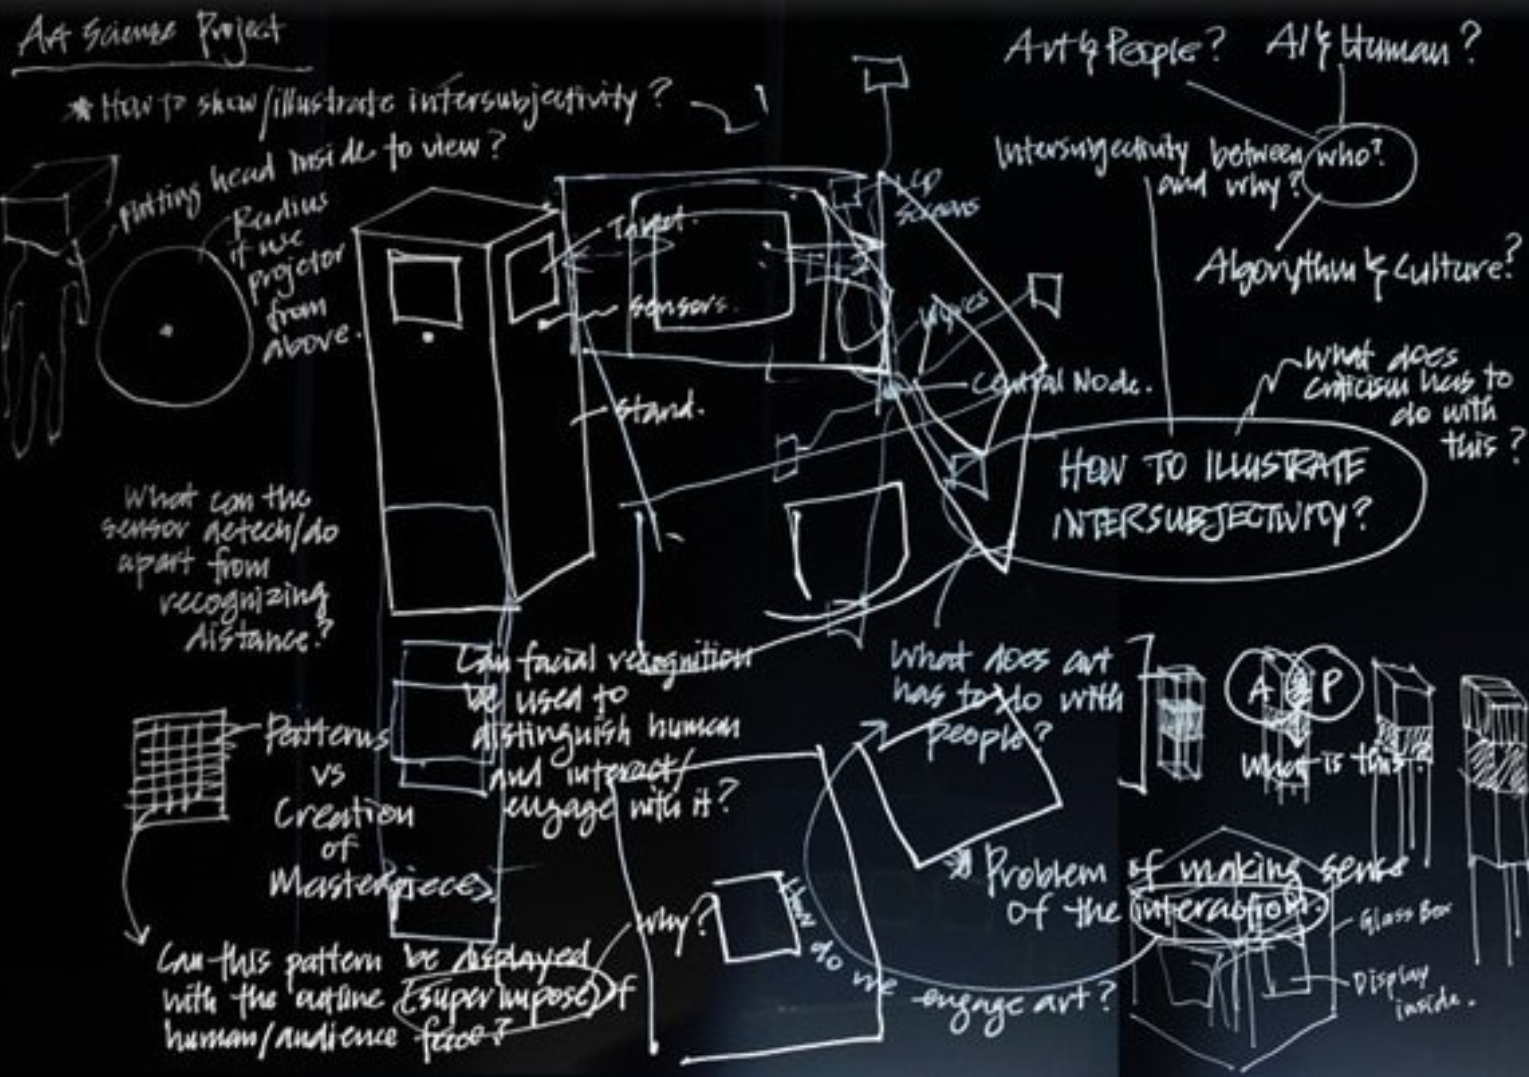 Art Science Project
* How to show/illustrate intersubjectivity?
Putting head inside to view?
Radius
if use
projetor
from
above.
Target.
Sensors.
Stand.
LCD
Screens
Central Node.
Art & People?
AI & Human?
Intersubjectivity between who?
and why?
Algorythm & Culture?
What does
criticism has to
do with
this?
HOW TO ILLUSTRATE
INTERSUBJECTIVITY?
What can the
sensor detech/do
apart from
recognizing
distance?
Can facial recognition
be used to
distinguish human
and interact/
engage with it?
What does art
has to do with
people?
A
P
What is this?
Patterns
vs
Creation
of
Masterpieces.
Can this pattern be displayed
with the outline (superimpose) of
human/audience face?
Why?
How do we engage art?
* Problem of making sense
of the interaction.
Glass Box
Display
inside.